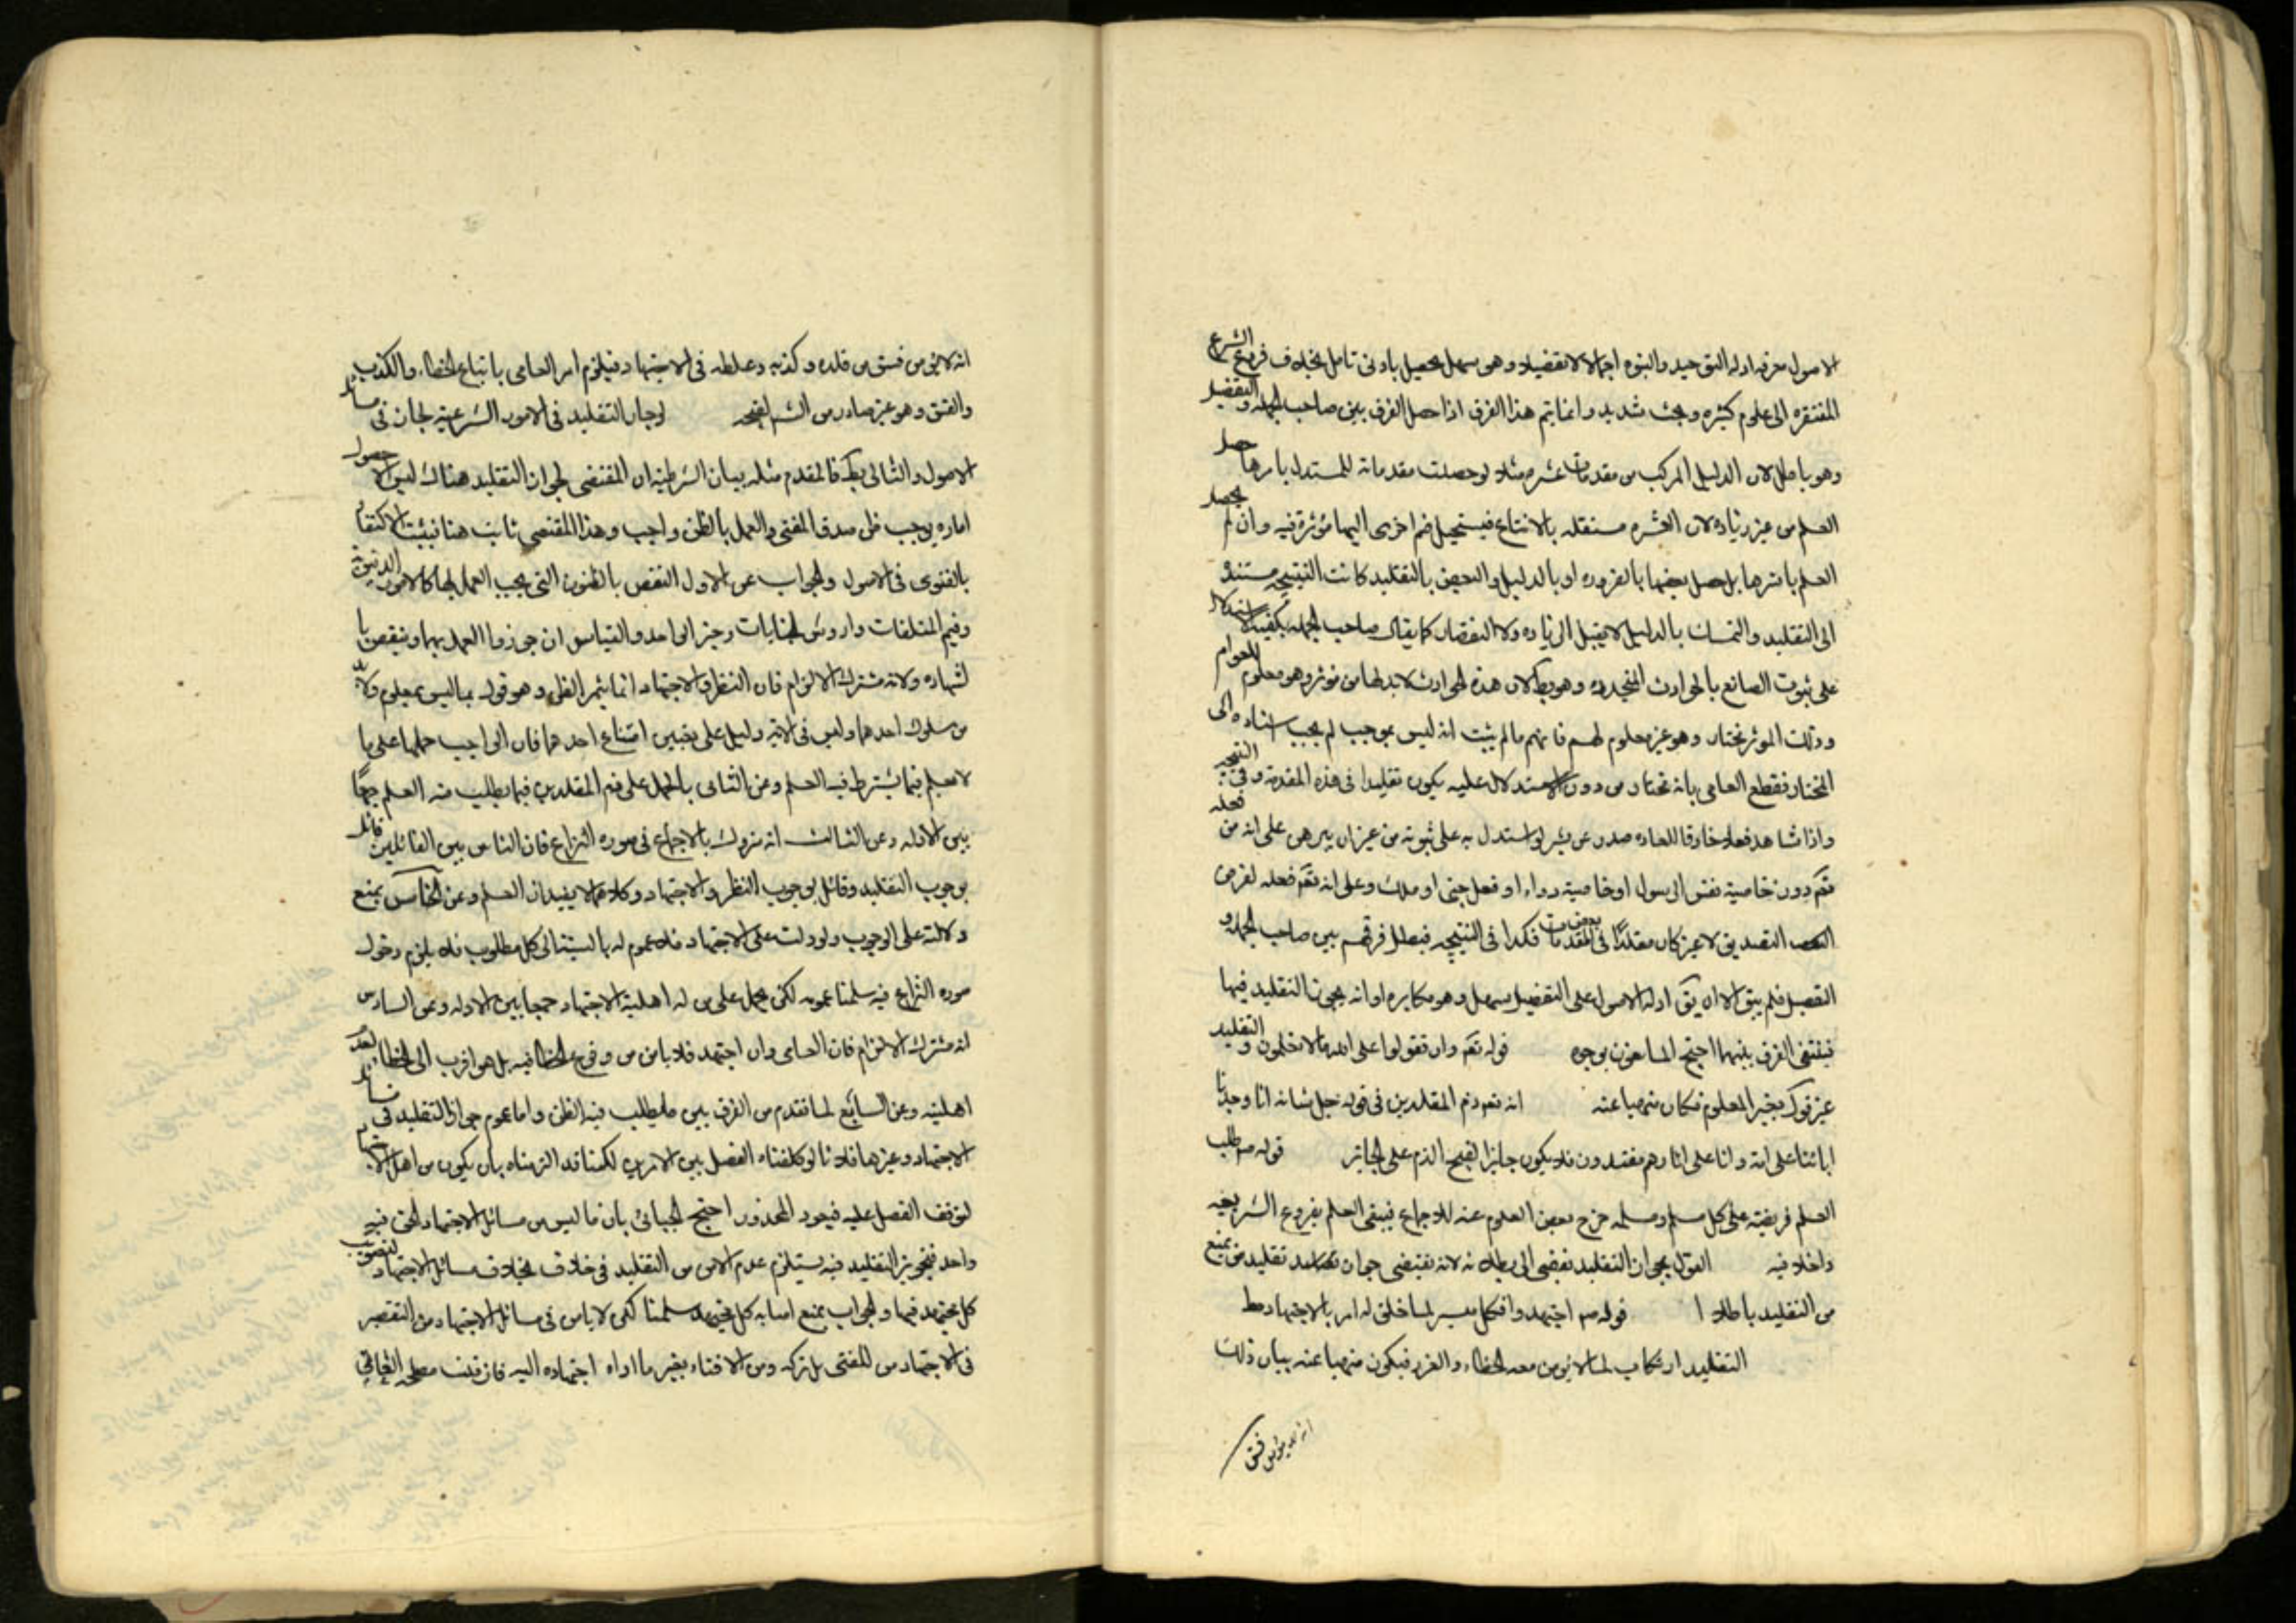 الاصول معرفه ادله التوحيد والنبوه اجمالا لا تفصيلا وهو سهل يحصل بادنى تامل بخلاف فروع الشرع
المفتقره الى علوم كثيره وبحث شديد وانما يتم هذا الفرق اذا حصل الفرق بين صاحب الجمله والتفصيل
وهو باطل لان الدليل المركب من مقدمات عشر مثلا لو حصلت مقدماته للمستدل باسرها حصل
العلم من غير زياده لان العشره مستقله بالانتاج فيستحيل ضم اخرى اليها مؤثرة فيه وان لم يحصل
العلم باسرها بل حصل بعضها بالضروره او بالدليل والبعض بالتقليد كانت النتيجه مستنده
الى التقليد والتمسك بالدليل لا يقبل الزياده ولا النقصان كما يقال صاحب الجمله يكفيه الاستدلال
على ثبوت الصانع بالحوادث المتجدده وهو بط لان هذه الحوادث لابد لها من مؤثر وهو معلوم للعوام
وذلك المؤثر مختار وهو غير معلوم لهم فانهم ما لم يثبت انه ليس بموجب لم يجب اسناده الى
المختار فقطع العامى بانه مختار من دون الاستدلال عليه يكون تقليدا فى هذه المقدمة وفى النتيجه
واذا شاهد فعلا خارقا للعاده صدر عن بشر لو استدل به على ثبوته من غير ان يبرهن على انه من فعله
تعم دون خاصية نفس الرسول او خاصية دواء او فعل جنى او ملك وعلى انه تعم فعله لغرض
التصديق لا غير كان مقلدا فى بعض المقدمات فكدا فى النتيجه فبطل فرقهم بين صاحب الجمله و
التفصيل فلم يبق الا ان يق ادله الاصول على التفصيل سهل وهو مكابره او انه يجوز التقليد فيها
فينتفى الفرق بينهما احتج المانعون بوجوه قوله تعم وان تقولوا على الله ما لا تعلمون والتقليد
غير قول بغير المعلوم فكان منهيا عنه انه تعم ذم المقلدين فى قوله جل شانه انا وجدنا
ابائنا على امة وانا على اثارهم مقتدون فلا يكون جايزا لقبح الذم على الجايز قوله صم طلب
العلم فريضة على كل مسلم ومسلمه خرج بعض العلوم عنه للاجماع فيبقى العلم بفروع الشريعه
داخلا فيه القول بجواز التقليد يفضى الى بطلانه لانه يقتضى جواز تقليد من يمنع
من التقليد باطلا قوله صم اجتهدوا فكل ميسر لما خلق له امر بالاجتهاد مط
التقليد ارتكاب لما لا يؤمن معه الخطاء والغرر فيكون منهيا عنه بيان ذلك
انه لا يؤمن فسق
انه لا يؤمن فسق من قلده وكذبه وغلطه فى الاجتهاد فيلزم امر العامى باتباع الخطاء والكذب
والفسق وهو غير صادر من الشم لقبحه لو جاز التقليد فى الامور الشرعيه لجاز فى مسائل
الاصول والتالى بط فالمقدم مثله بيان الشرطيه ان المقتضى لجواز التقليد هناك ليس الا حصول
اماره يوجب ظن صدق المفتى والعمل بالظن واجب وهذا المقتضى ثابت هنا فيثبت الاكتفاء
بالفتوى فى الاصول والجواب عن الاول النقض بالظنون التى يجب العمل بها كالامور الدنيوية
وقيم المتلفات واروش الجنايات وخبر الواحد والقياس ان جوزوا العمل بهما وينقض با
لشهاده ولانه مشترك الالزام فان النظر والاجتهاد انما يثمر الظن وهو قول بما ليس بمعلوم ولابد
من سلوك احدهما وليس فى الاية دليل على تعيين امتناع احدهما فان الواجب حملها على ما
لا يعلم فيما يشترط فيه العلم وعن الثانى بالحمل على ذم المقلدين فيما يطلب فيه العلم جمعًا
بين الادله وعن الثالث انه متروك بالاجماع فى صوره النزاع فان الناس بين القائلين قائل
بوجوب التقليد وقائل بوجوب النظر والاجتهاد وكلاهما لا يفيدان العلم وعن الخامس بمنع
دلالته على الوجوب ولو دلت على الاجتهاد فلا عموم له بالنسبة الى كل مطلوب فلا يلزم دخول
صوره النزاع فيه سلمنا عمومه لكن يحمل على من له اهلية الاجتهاد جمعا بين الادله وعن السادس
انه مشترك الالزام فان العامى وان اجتهد فلا يامن من وقوع الخطا فيه بل هو اقرب الى الخطا لعدم
اهليته وعن السابع لما تقدم من الفرق بين ما يطلب فيه الظن واما عموم جواز التقليد فى مسائل
الاجتهاد وغيرها فلانا لو كلفناه الفصل بين الامرين لكنا قد الزمناه بان يكون من اهل الاجتهاد
لتوقف الفصل عليه فيعود المحذور احتج الجبائى بان ما ليس من مسائل الاجتهاد الحق فيه
واحد فتجويز التقليد فيه يستلزم عدم الامن من التقليد فى خلاف بخلاف مسائل الاجتهاد لتصويب
كل مجتهد فيها والجواب بمنع اصابه كل مجتهد سلمنا لكن لا يامن فى مسائل الاجتهاد من التقصير
فى الاجتهاد من المفتى بل تركه ومن الافتاء بغير ما اداه اجتهاده اليه فان قلت مصلحه العامى